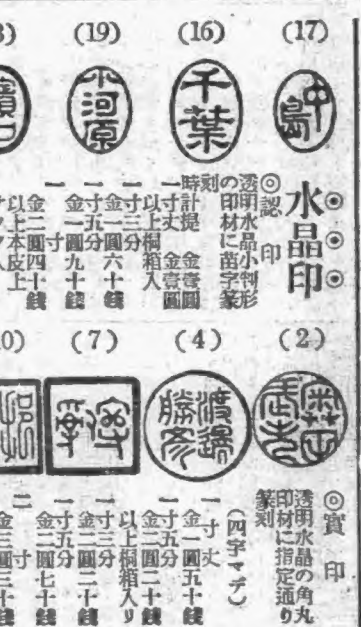 (17)
(16)
(19)
中島
千葉
小河原
◎◎◎水晶印
◎認印
透明水晶小判形
の印材に苗字篆
刻
時計提 金壹圓
一寸丈 金壹圓
以上桐箱入
一寸三分
金一圓六十錢
一寸五分
金一圓九十錢
一寸
金二圓四十錢
以上本皮上
(2)
(4)
(7)
渡邊勝彦
◎實印
透明水晶の角丸
印材に指定通り
篆刻
(四字マデ)
一寸丈
金一圓五十錢
一寸五分
金二圓二十錢
以上桐箱入り
一寸三分
金二圓二十錢
一寸五分
金二圓七十錢
二寸
金三圓三十錢